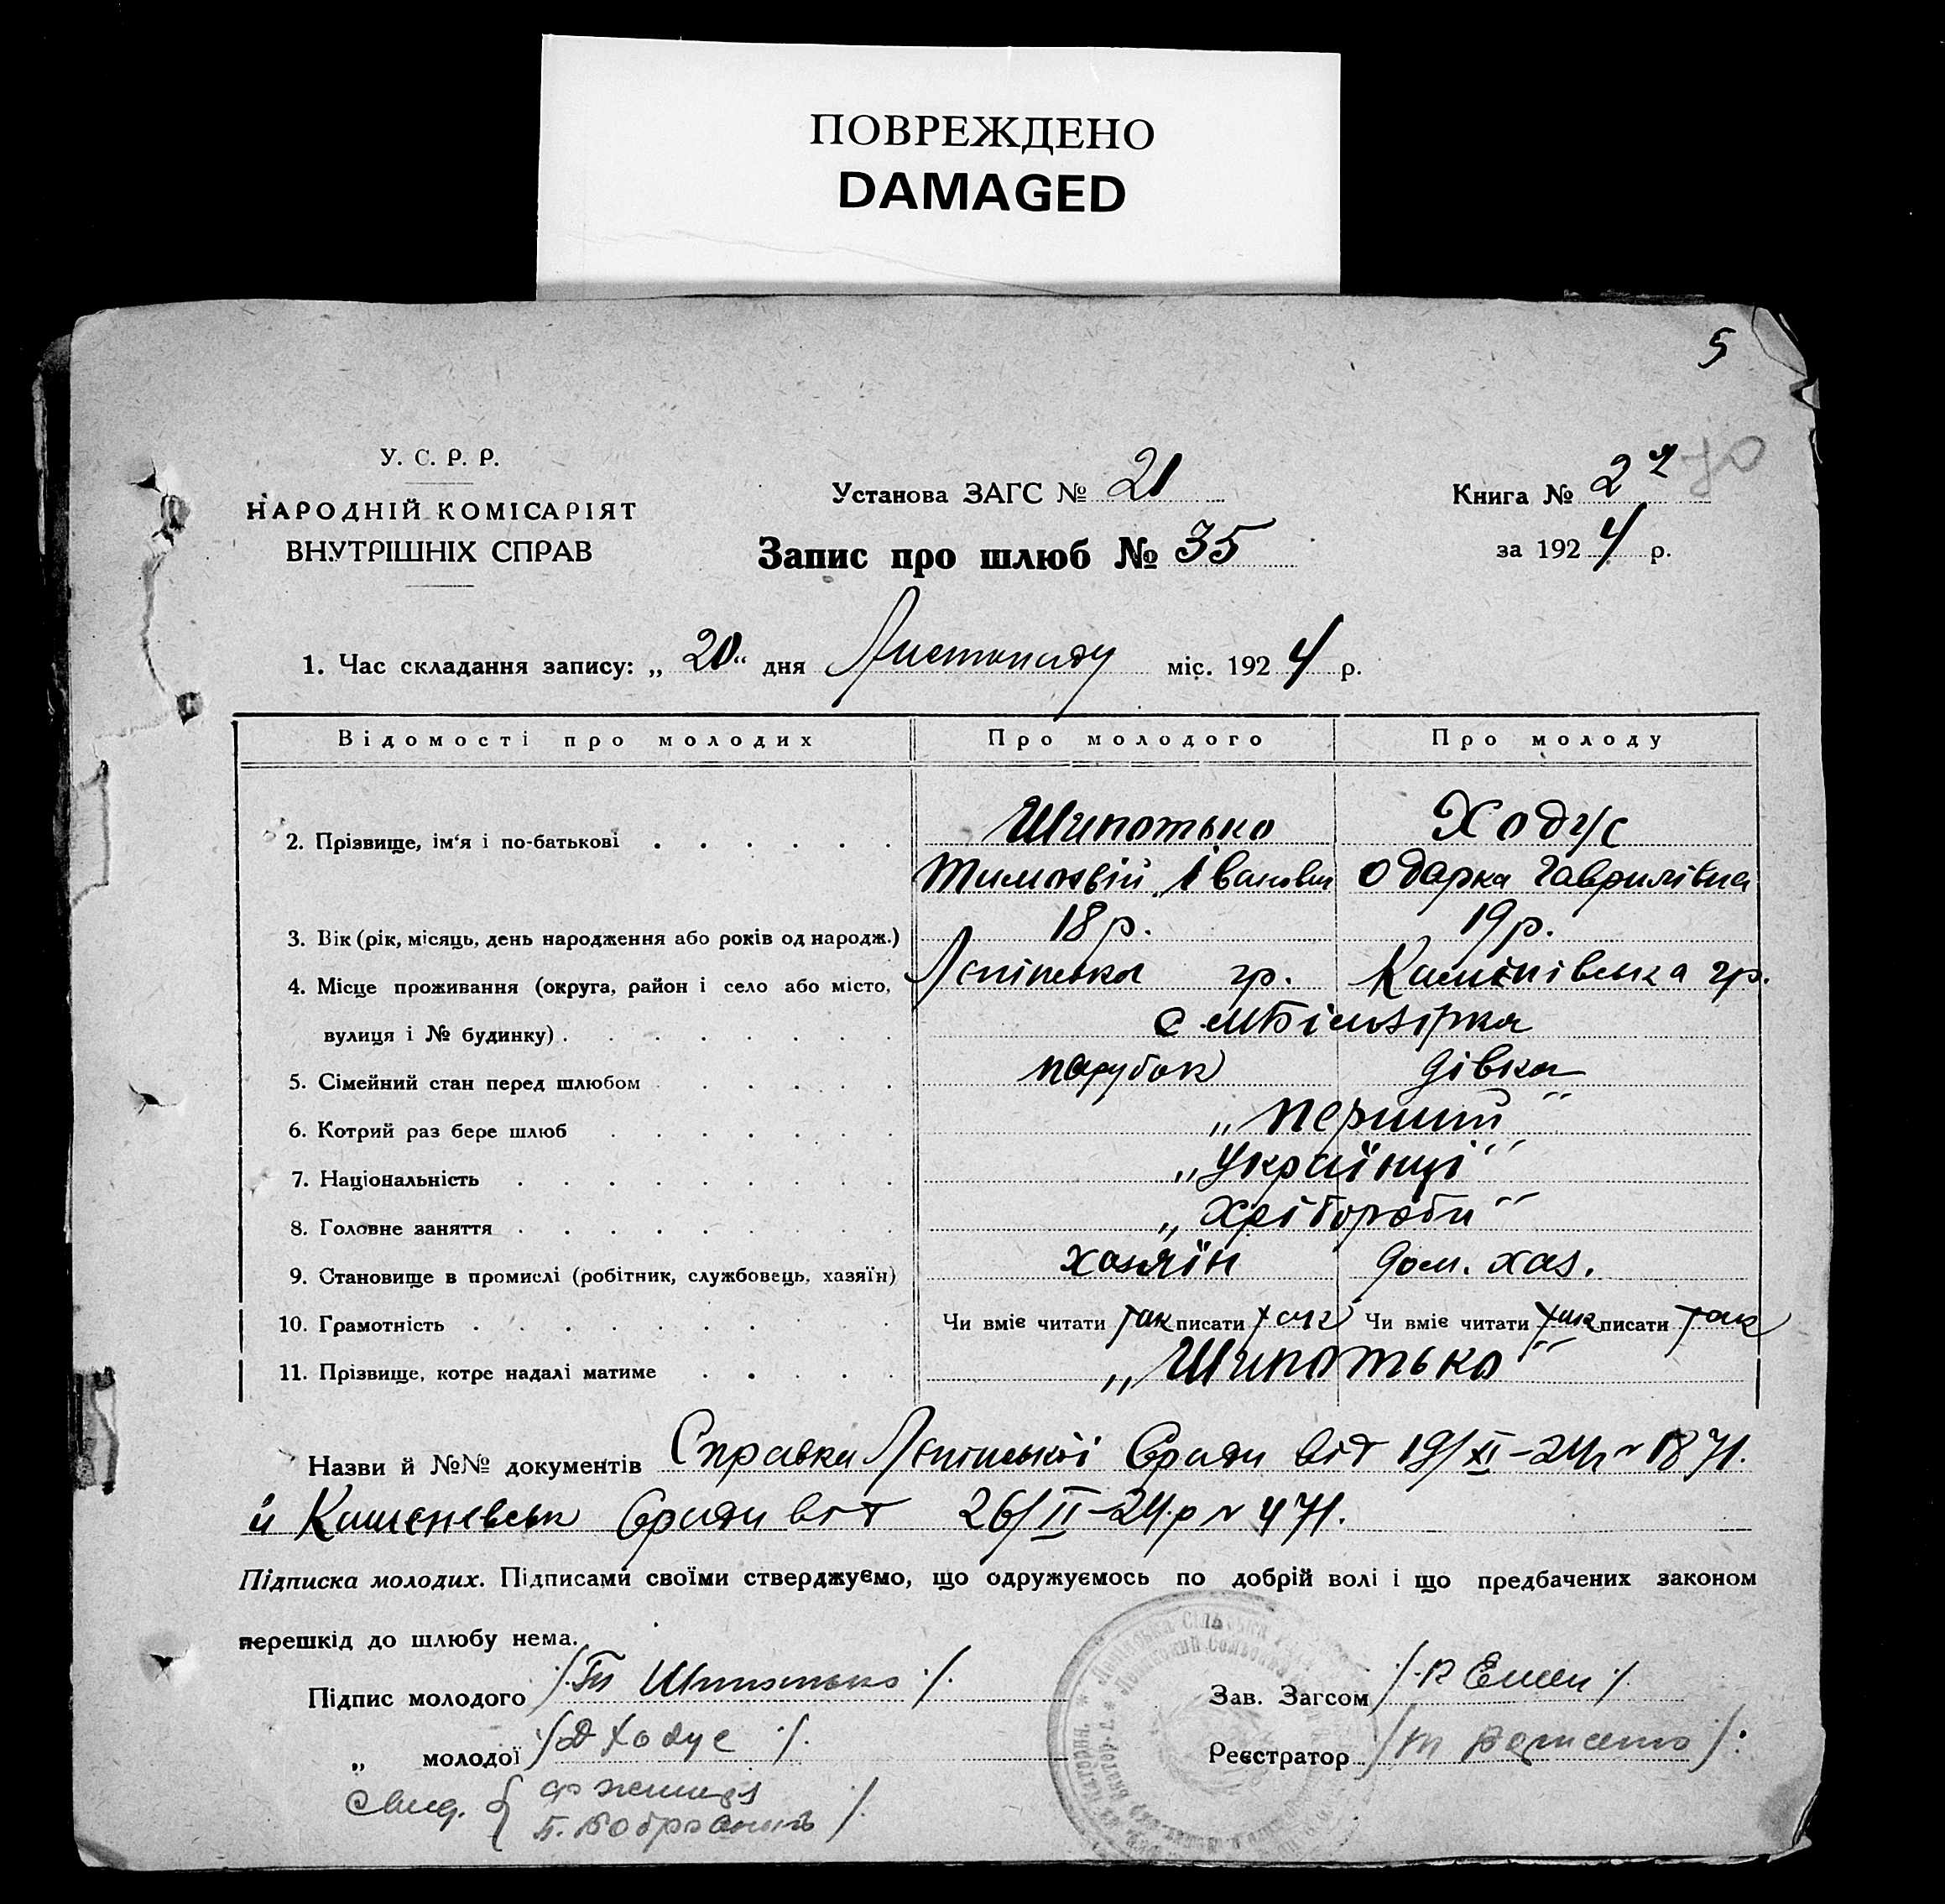 ПОВРЕЖДЕНО
DAMAGED
5
У. С. Р. Р.
НАРОДНІЙ КОМІСАРІЯТ
ВНУТРІШНІХ СПРАВ
Установа ЗАГС № 21
Книга № 2
Запис про шлюб № 35
за 1924 р.
1. Час складання запису: „ 20 “ дня Листопаду міс. 1924 р.
Відомості про молодих Про молодого Про молоду
2. Прізвище, ім'я і по-батькові Шипотько Ходус
Тимохвій Іванович Одарка Гаврилівна
3. Вік (рік, місяць, день народження або років од народж.) 18 р. 19 р.
4. Місце проживання (округа, район і село або місто, гр. гр.
вулиця і № будинку)
5. Сімейний стан перед шлюбом парубок дівка
6. Котрий раз бере шлюб „перший“
7. Національність „Українці“
8. Головне заняття „Хлібороби“
9. Становище в промислі (робітник, службовець, хазяїн) хазяїн дом. хаз.
10. Грамотність Чи вміє читати так писати так Чи вміє читати так писати так
11. Прізвище, котре надалі матиме „Шипотько“
Назви й №№ документів Справка від 19/XI-24р № 1871.
й 26/II-24р № 471.
Підписка молодих. Підписами своїми стверджуємо, що одружуємось по добрій волі і що предбачених законом
перешкід до шлюбу нема.
Підпис молодого /Шипотько/.
Зав. Загсом
„ молодої /Ходус/.
Реєстратор